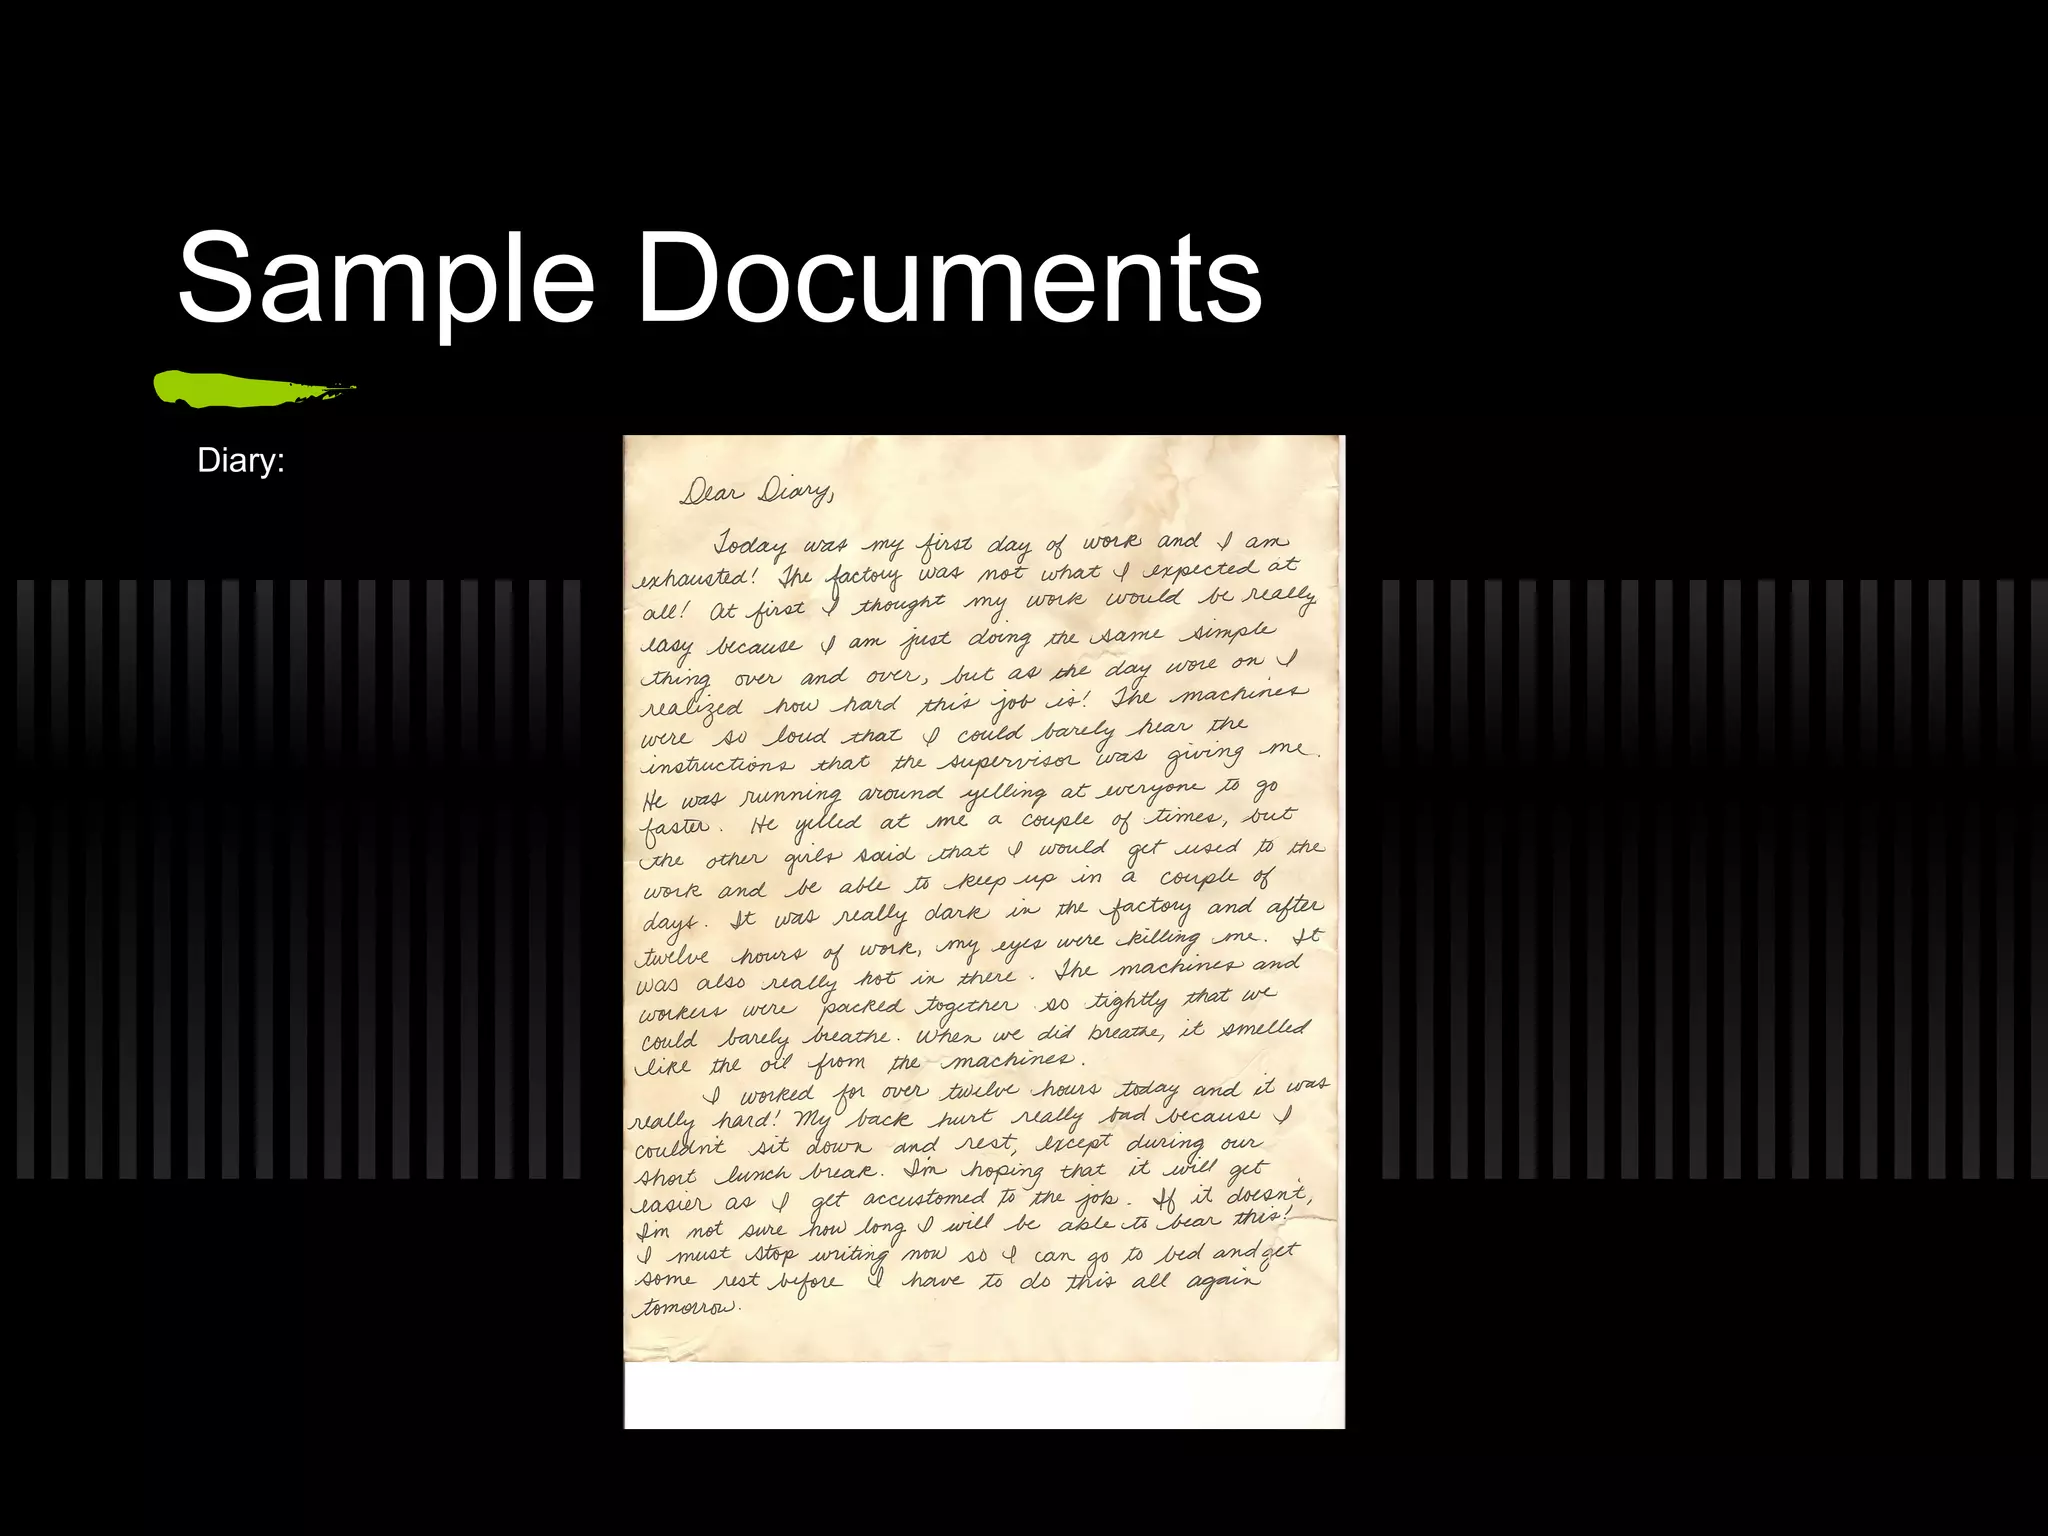 Sample Documents
Diary:
Dear Diary,
Today was my first day of work and I am
exhausted! The factory was not what I expected at
all! At first I thought my work would be really
easy because I am just doing the same simple
thing over and over, but as the day wore on I
realized how hard this job is! The machines
were so loud that I could barely hear the
instructions that the supervisor was giving me.
He was running around yelling at everyone to go
faster. He yelled at me a couple of times, but
the other girls said that I would get used to the
work and be able to keep up in a couple of
days. It was really dark in the factory and after
twelve hours of work, my eyes were killing me. It
was also really hot in there. The machines and
workers were packed together so tightly that we
could barely breathe. When we did breathe, it smelled
like the oil from the machines.
I worked for over twelve hours today and it was
really hard! My back hurt really bad because I
couldn't sit down and rest, except during our
short lunch break. I'm hoping that it will get
easier as I get accustomed to the job. If it doesn't,
I'm not sure how long I will be able to bear this!
I must stop writing now so I can go to bed and get
some rest before I have to do this all again
tomorrow.